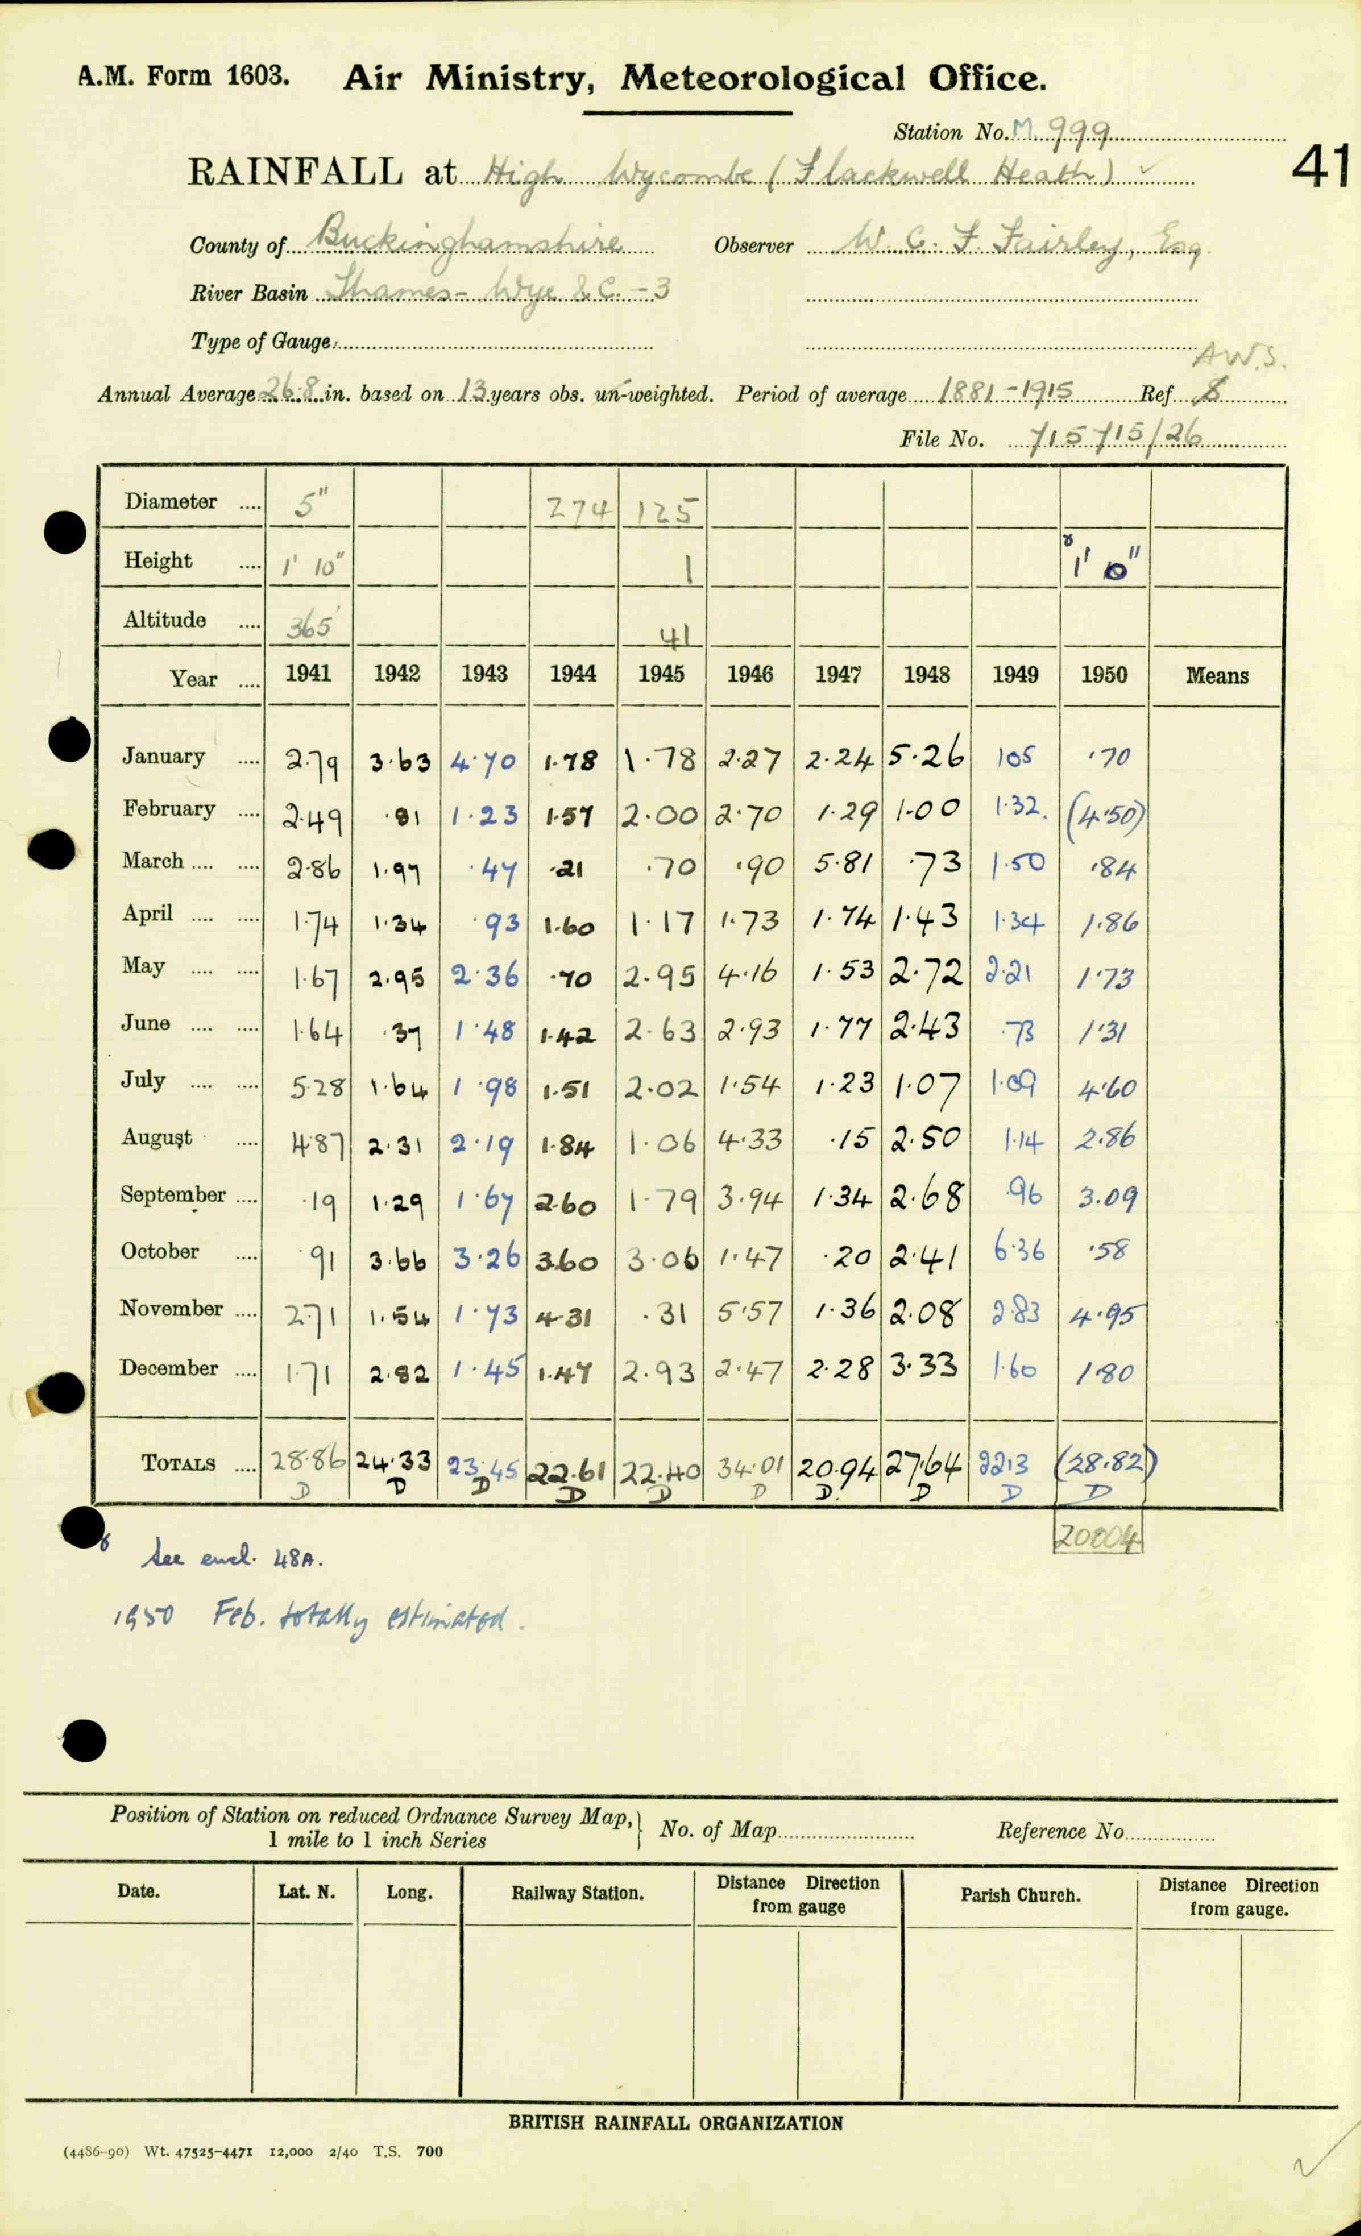 A.M. Form 1603. Air Ministry, Meteorological Office.
Station No. M. 999
41
RAINFALL at High Wycombe (Flackwell Heath) ✓
County of Buckinghamshire Observer W. C. F. Fairley, Esq
River Basin Thames - Wye &C. - 3
Type of Gauge
A.W.S.
Annual Average 26.8 in. based on 13 years obs. un-weighted. Period of average 1881-1915 Ref 8
File No. 715715/26
Diameter .... 5" 274 125
Height .... 1' 10" 1 1' 0"
Altitude .... 365' 41
Year .... 1941 1942 1943 1944 1945 1946 1947 1948 1949 1950 Means
January .... 2.79 3.63 4.70 1.78 1.78 2.27 2.24 5.26 105 .70
February .... 2.49 .81 1.23 1.57 2.00 2.70 1.29 1.00 1.32. (4.50)
March .... .... 2.86 1.97 .47 .21 .70 .90 5.81 .73 1.50 .84
April .... .... 1.74 1.34 .93 1.60 1.17 1.73 1.74 1.43 1.34 1.86
May .... .... 1.67 2.95 2.36 .70 2.95 4.16 1.53 2.72 2.21 1.73
June .... .... 1.64 .37 1.48 1.42 2.63 2.93 1.77 2.43 .73 1.31
July .... .... 5.28 1.64 1.98 1.51 2.02 1.54 1.23 1.07 1.09 4.60
August .... 4.87 2.31 2.19 1.84 1.06 4.33 .15 2.50 1.14 2.86
September .... .19 1.29 1.67 2.60 1.79 3.94 1.34 2.68 .96 3.09
October .... .91 3.66 3.26 3.60 3.06 1.47 .20 2.41 6.36 .58
November .... 2.71 1.54 1.73 4.31 .31 5.57 1.36 2.08 2.83 4.95
December .... 1.71 2.82 1.45 1.47 2.93 2.47 2.28 3.33 1.60 1.80
TOTALS .... 28.86 24.33 23.45 22.61 22.40 34.01 20.94 27.64 22.13 (28.82)
D D D D D D D. D D D
20004
See encl. 48A.
1950 Feb. totally estimated.
Position of Station on reduced Ordnance Survey Map, } No. of Map Reference No
1 mile to 1 inch Series
Date. Lat. N. Long. Railway Station. Distance Direction from gauge Parish Church. Distance Direction from gauge.
BRITISH RAINFALL ORGANIZATION
(4486-90) Wt. 47525-4471 12,000 2/40 T.S. 700
✓